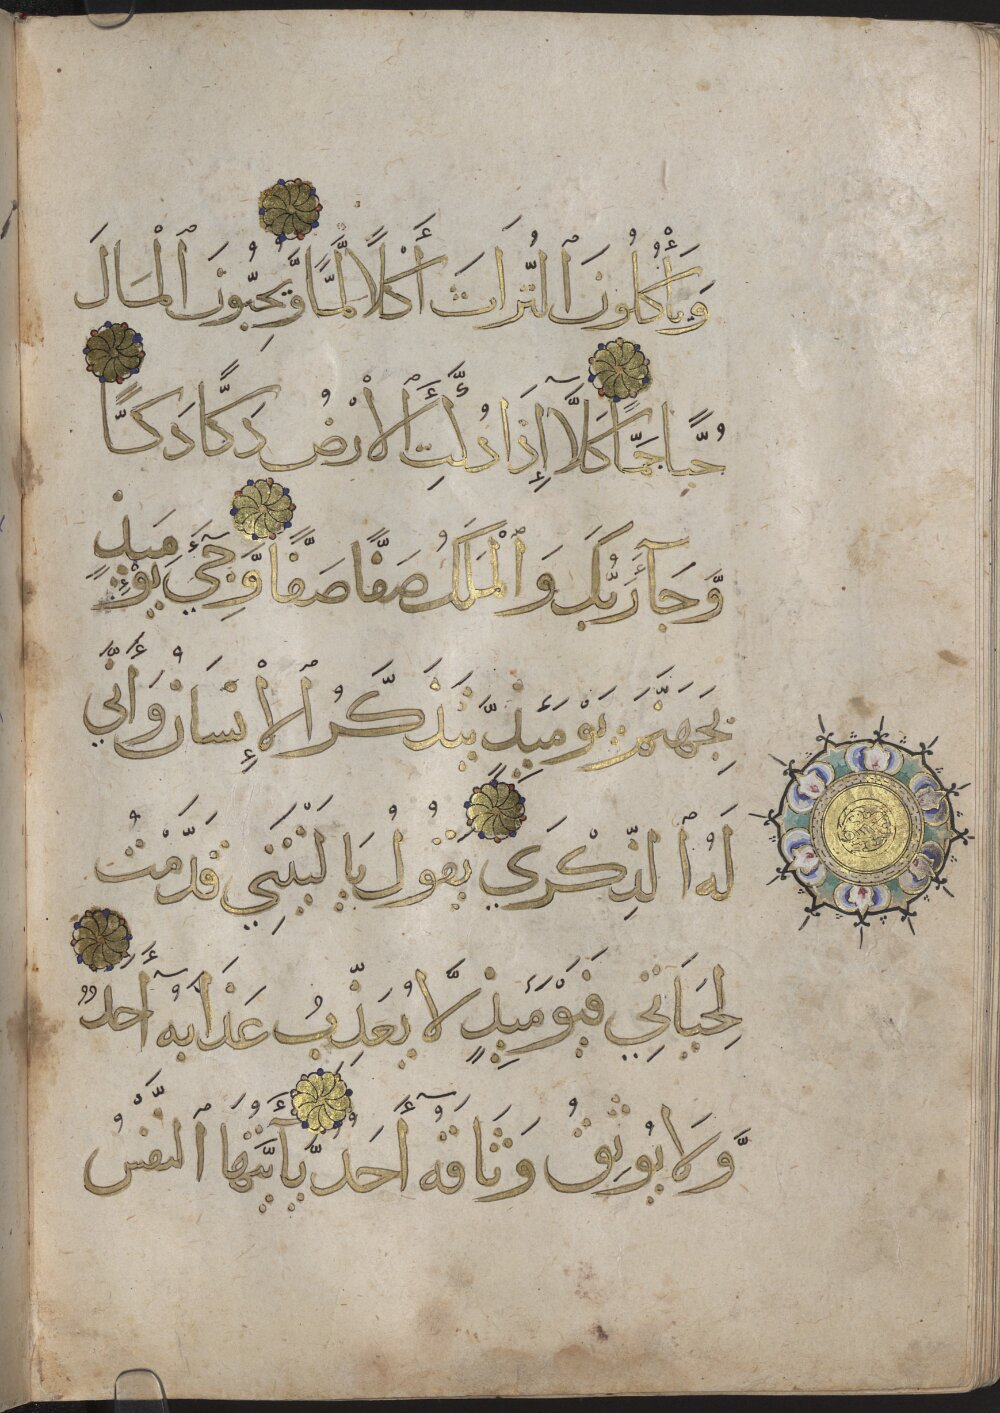 وَيَأْكُلُونَ ٱلتُّرَاثَ أَكْلًا لَّمًّا وَّيُحِبُّونَ ٱلْمَالَ
حُبًّا جَمًّا كَلَّآ إِذَا دُكَّتِ ٱلْأَرْضُ دَكًّا دَكًّا
وَّجَآءَ رَبُّكَ وَٱلْمَلَكُ صَفًّا صَفًّا وَّجِيٓءَ يَوْمَئِذٍ
بِجَهَنَّمَ يَوْمَئِذٍ يَّتَذَكَّرُ ٱلْإِنْسَانُ وَأَنَّي
لَهُ ٱلذِّكْرَي يَقُولُ يَا لَيْتَنِي قَدَّمْتُ
لِحَيَاتِي فَيَوْمَئِذٍ لَّا يُعَذِّبُ عَذَابَهُٓ أَحَدٌ
وَّلَا يُوثِقُ وَثَاقَهُٓ أَحَدٌ يَّآ أَيَّتُهَا ٱلنَّفْسُ